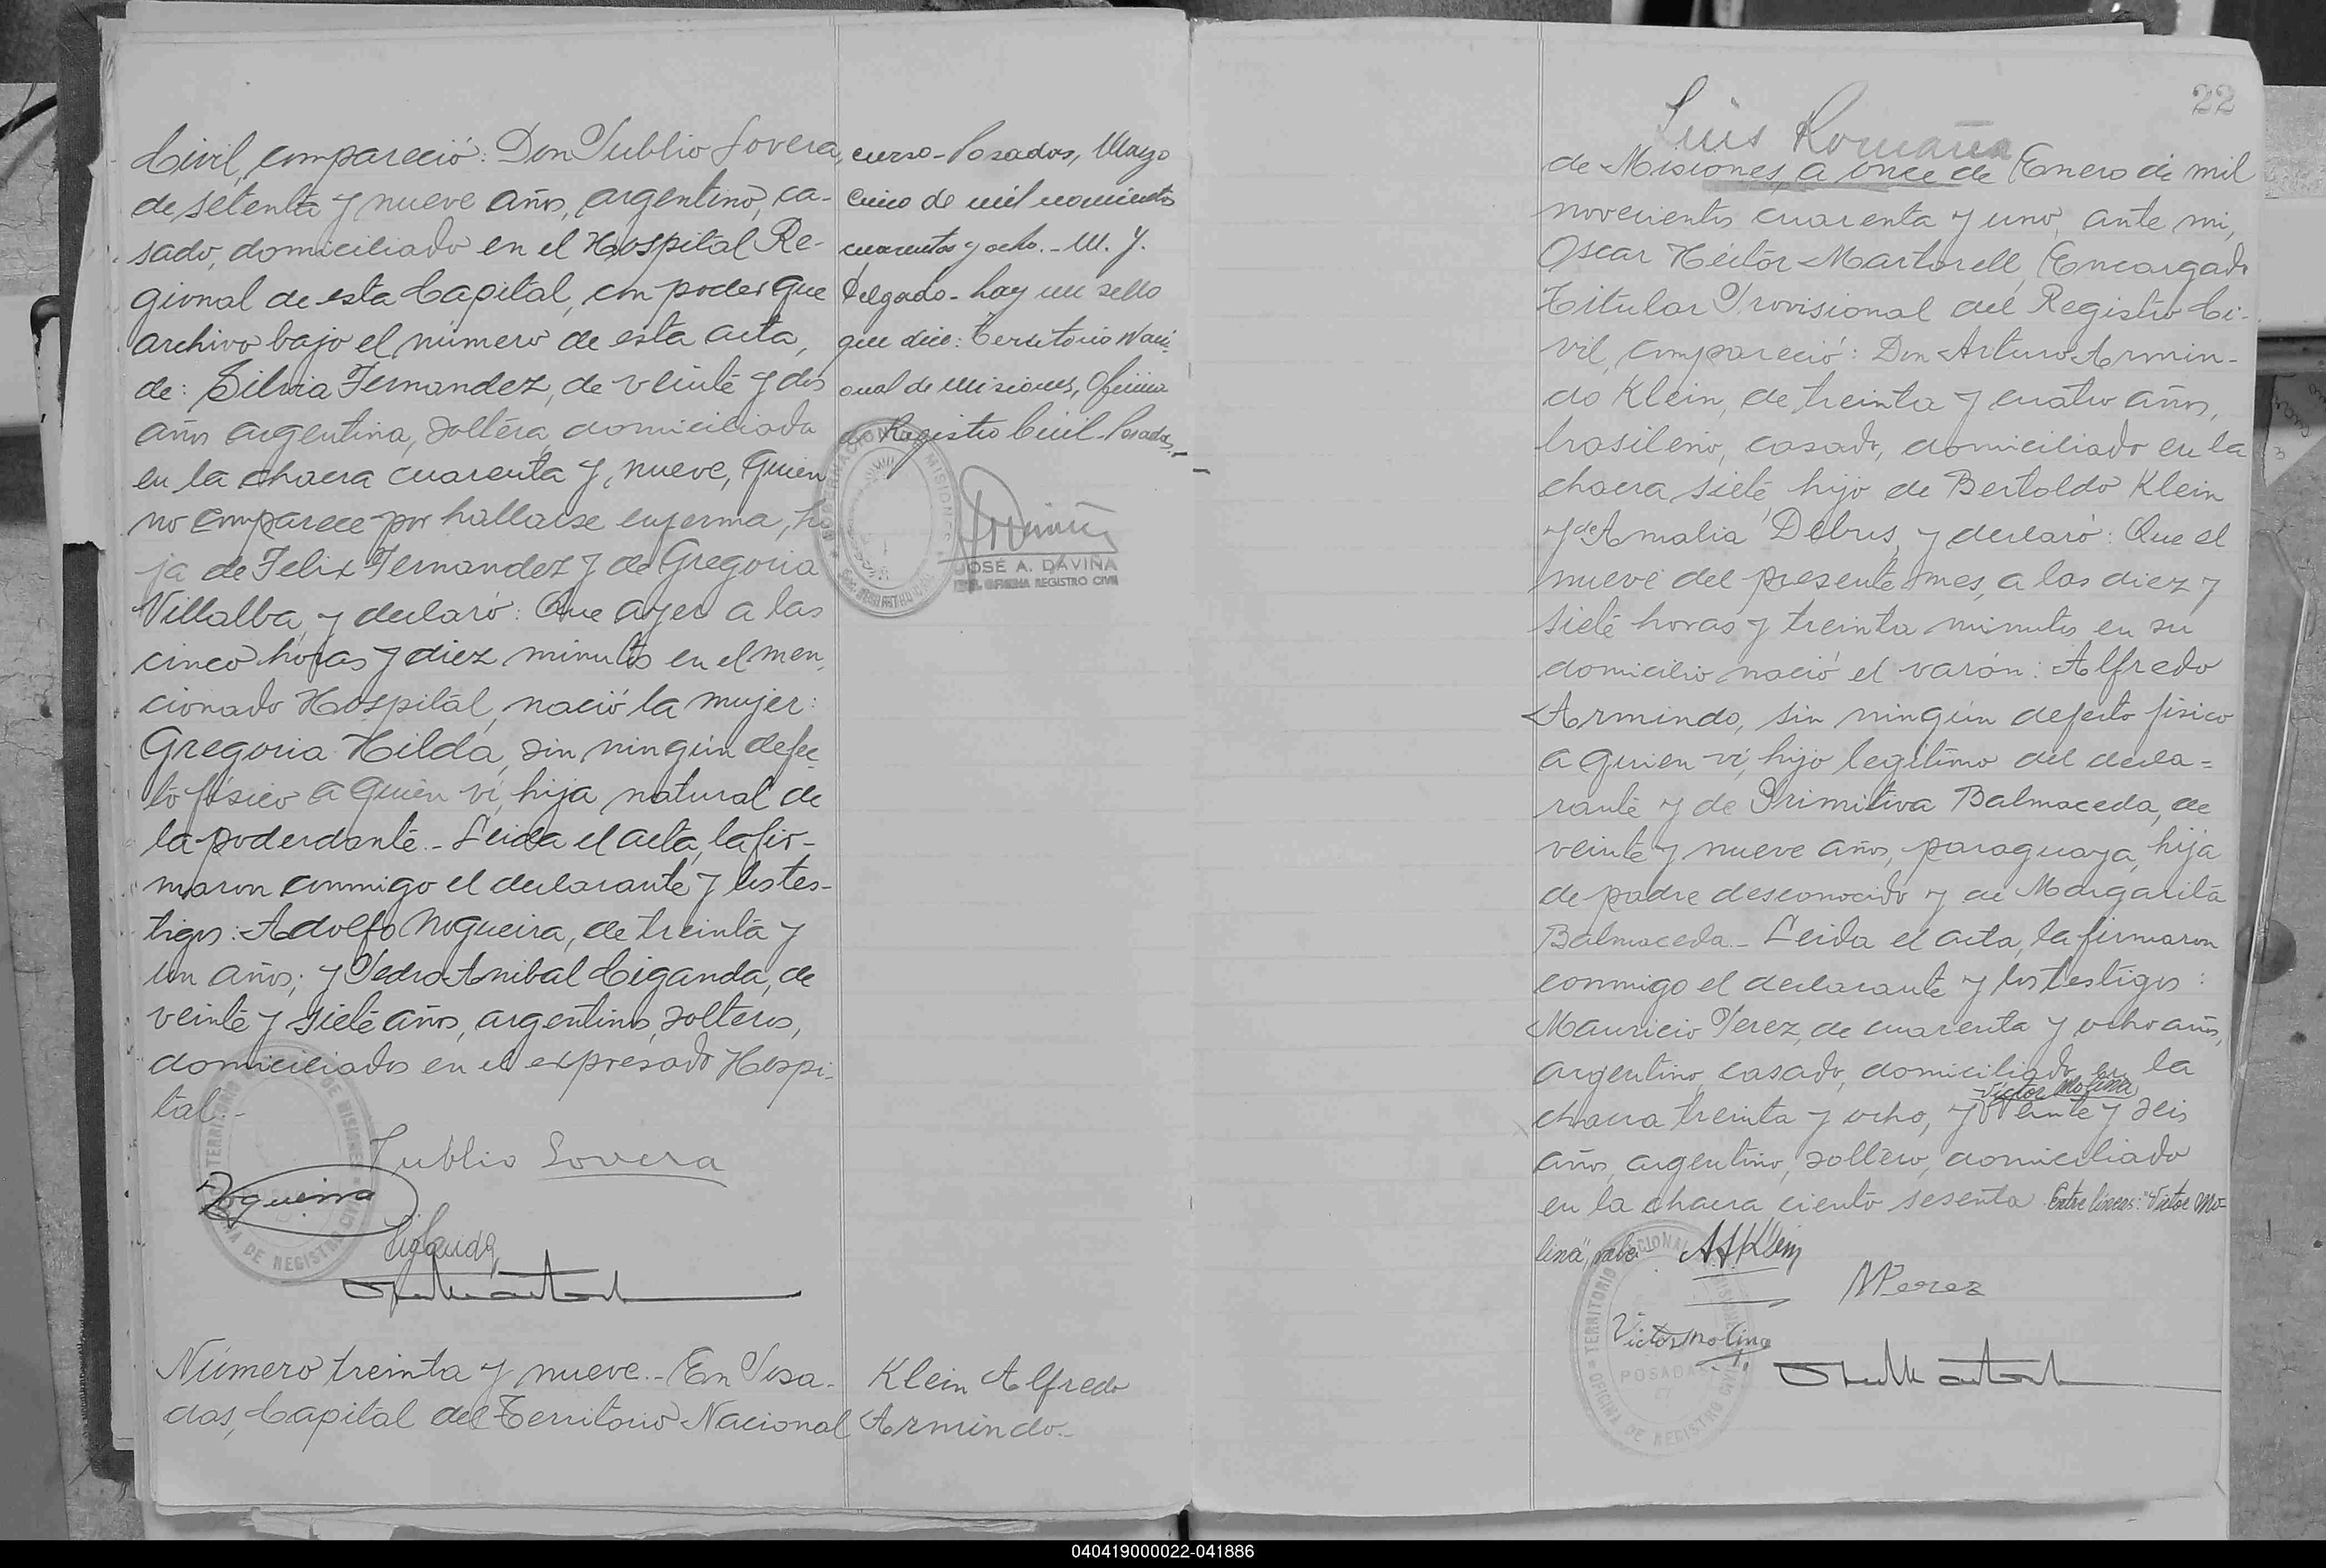 Civil, compareció: Don Publio Lovera,
de setenta y nueve años, argentino, ca-
sado, domiciliado en el Hospital Re-
gional de esta Capital, con poder que
archivo bajo el número de esta acta,
de: Silvia Fernandez, de veinte y dos
años argentina, soltera, domiciliada
en la chacra cuarenta y nueve, quien
no comparece por hallarse enferma, hi
ja de Felix Fernandez y de Gregoria
Villalba, y declaró: Que ayer a las
cinco horas y diez minutos en el men
cionado Hospital, nació la mujer:
Gregoria Hilda, sin ningún defec
to físico a quien vi, hija natural de
la poderdante.- Leida el acta, la fir-
maron conmigo el declarante y los tes-
tigos: Adolfo Nogueira, de treinta y
un años; y Pedro Anibal Ciganda, de
veinte y siete años, argentinos, solteros,
domiciliados en el expresado Hospi-
tal.-
Publio Lovera
Nogueira
Ciganda
Número treinta y nueve.- En Posa-
das, Capital del Territorio Nacional
curso - Posadas, Marzo
cinco de mil novecientos
cuarenta y ocho.- M. J.
Delgado - hay un sello
que dice: Territorio Naci
onal de Misiones, Oficina
de Registro Civil - Posadas.-
JOSÉ A. DAVIÑA
OFICINA REGISTRO CIVIL
Klein Alfredo
Armindo.-
22
Luis Romaña
de Misiones, a once de Enero de mil
novecientos cuarenta y uno, ante mi,
Oscar Héctor Martorell, Encargado
Titular Provisional del Registro Ci-
vil, compareció: Don Arturo Armin-
do Klein, de treinta y cuatro años,
brasileño, casado, domiciliado en la
chacra siete, hijo de Bertoldo Klein
y de Amalia Debus, y declaró: Que el
nueve del presente mes, a las diez y
siete horas y treinta minutos en su
domicilio nació el varón: Alfredo
Armindo, sin ningún defecto físico
a quien vi, hijo legítimo del decla=
rante y de Primitiva Balmaceda, de
veinte y nueve años, paraguaya, hija
de padre desconocido y de Margarita
Balmaceda.- Leida el acta, la firmaron
conmigo el declarante y los testigos:
Mauricio Perez, de cuarenta y ocho años,
argentino, casado, domiciliado en la
Victor Molina
chacra treinta y ocho, y veinte y seis
años, argentino, soltero, domiciliado
en la chacra ciento sesenta. Entre lineas: "Victor Mo-
lina", vale.- A. A. Klein
M Perez
Victor Molina
TERRITORIO NACIONAL DE MISIONES
POSADAS
OFICINA DE REGISTRO CIVIL
040419000022-041886